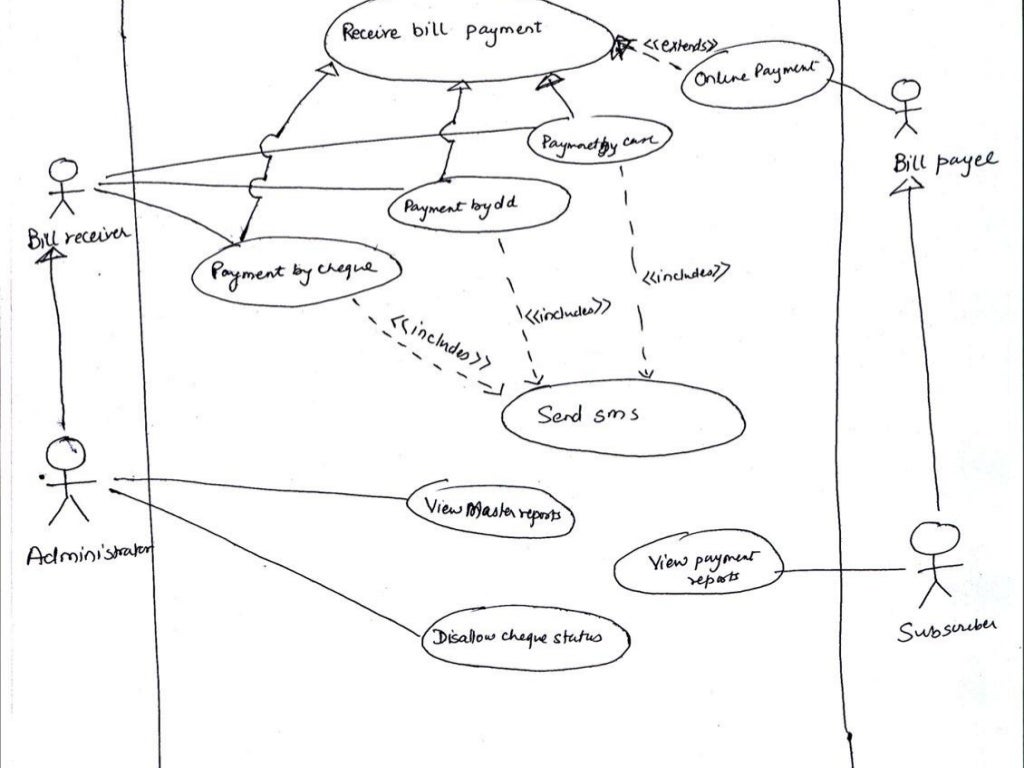 Receive bill payment
<<extends>>
Online Payment
Payment by
Bill payee
Payment by dd
Bill receiver
Payment by cheque
<<includes>>
<<includes>>
<<includes>>
Send sms
View Master reports
Administrator
View payment
reports
Subscriber
Disallow cheque status